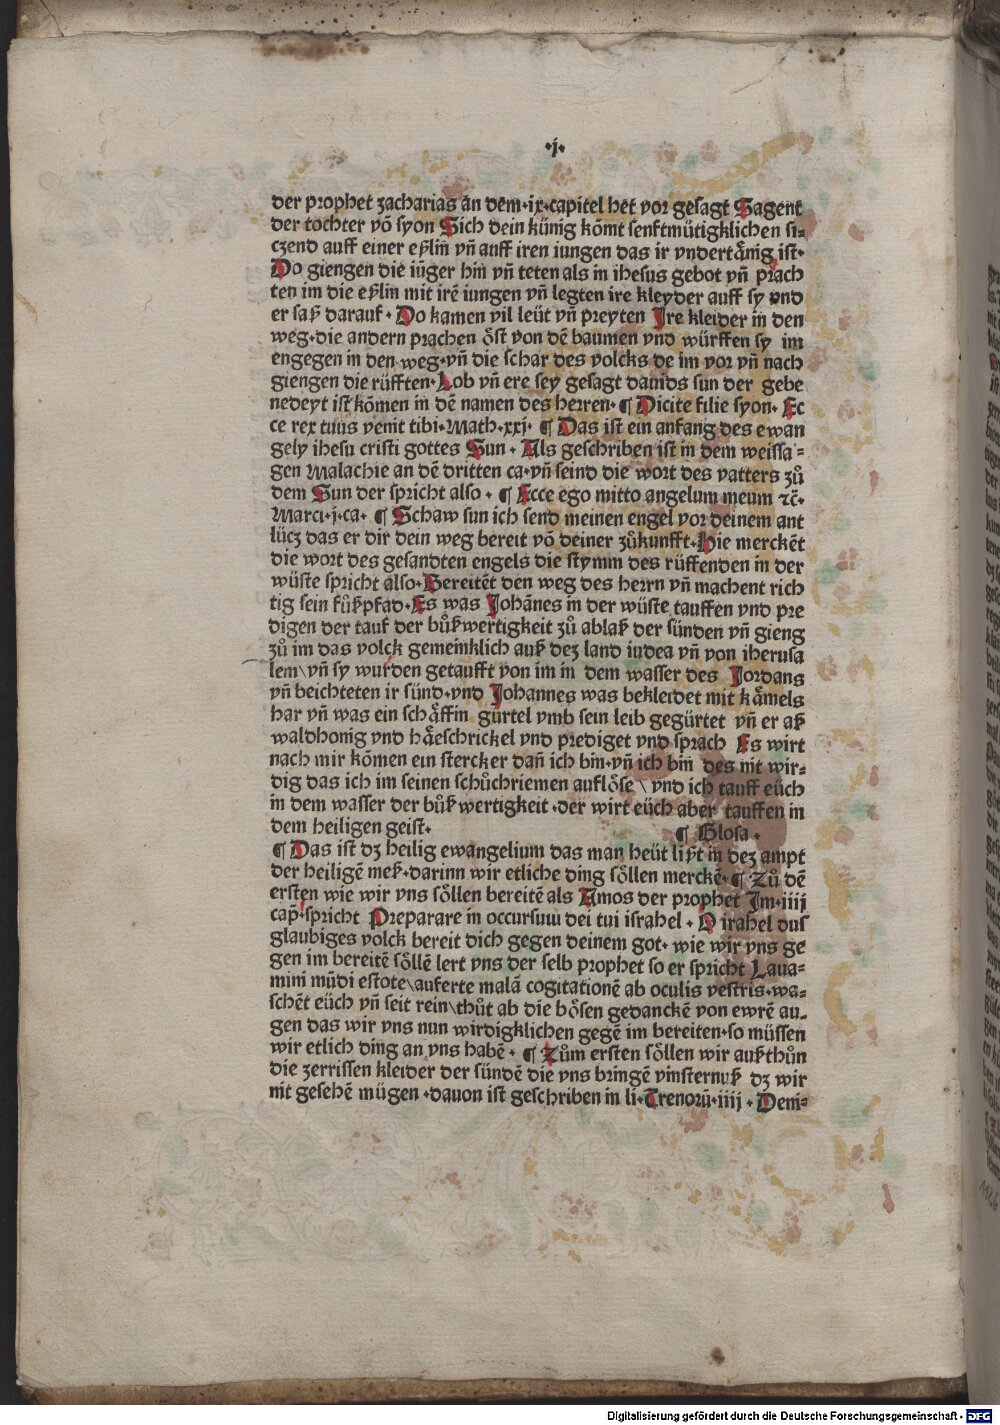 ·j·
der prophet zacharias an dem·ix·capitel het vor gesagt Sagent
der tochter võ syon Sich dein künig kõmt senftmütigklichen si⸗
czend auff einer eßlin vñ auff iren iungen das ir vndertå̈nig ist·
Do giengen die iünger hin vñ teten als in ihesus gebot vñ prach
ten im die eßlin mit irẽ iungen vñ legten ire kleyder auff sy vnd
er saß darauf · Do kamen vil leüt vñ preyten Ire kleider in den
weg·die andern prachen öst von dẽ baumen vnd würffen sy im
engegen in den weg·vñ die schar des volcks de im vor vñ nach
giengen die rüfften·Lob vñ ere sey gesagt dauids sun der gebe
nedeyt ist kõmen in dẽ namen des herren·¶ Dicite filie syon· Ec
ce rex tuus venit tibi·Math·xxj· ¶ Das ist ein anfang des ewan
gely ihesu cristi gottes Sun · Als geschriben ist in dem weissa⸗
gen Malachie an dẽ dritten ca·vñ seind die wort des vatters zů
dem Sun der spricht also · ¶ Ecce ego mitto angelum meum ⁊c̃·
Marci·j·ca· ¶ Schaw sun ich send meinen engel vor deinem ant
lücz das er dir dein weg bereit võ deiner zůkunfft·Hie merckẽt
die wort des gesandten engels die stymm des rüffenden in der
wüste spricht also·Bereitẽt den weg des herrn vñ machent rich
tig sein fůßpfad·Es was Johãnes in der wüste tauffen vnd pre
digen der tauf der bůßwertigkeit zů ablaß der sünden vñ gieng
zů im das volck gemeinklich auß dez land iudea vñ von iherusa
lem\vñ sy wurden getaufft von im in dem wasser des Jordans
vñ beichteten ir sünd·vnd Johannes was bekleidet mit kämels
har vñ was ein schäffin gürtel vmb sein leib gegürtet vñ er aß
waldhonig vnd häeschrickel vnd prediget vnd sprach Es wirt
nach mir kõmen ein stercker dañ ich bin·vñ ich bin des nit wir⸗
dig das ich im seinen schůchriemen auflöse \ vnd ich tauff eüch
in dem wasser der bůßwertigkeit ·der wirt eüch aber tauffen in
dem heiligen geist·                    ¶ Glosa ·
¶ Das ist dz heilig ewangelium das man heüt lißt in dez ampt
der heiligẽ meß·darinn wir etliche ding söllen merckẽ·¶ Zů dẽ
ersten wie wir vns söllen bereitẽ als Amos der prophet Jm·iiij
cap̃·spricht Preparare in occursuu dei tui israhel · O irahel dus
glaubiges volck bereit dich gegen deinem got· wie wir vns ge
gen im bereitẽ söllẽ lert vns der selb prophet so er spricht Laua⸗
mini mũdi estote\auferte malã cogitationẽ ab oculis vestris·wa⸗
schẽt eüch vñ seit rein\thůt ab die bösen gedanckẽ von ewrẽ au⸗
gen das wir vns nun wirdigklichen gegẽ im bereiten·so müssen
wir etlich ding an vns habẽ · ¶ Zům ersten söllen wir außthůn
die zerrissen kleider der sündẽ die vns bringẽ vinsternuß dz wir
nit gesehẽ mügen ·dauon ist geschriben in li·Trenorũ·iiij · Deni⸗
Digitalisierung gefördert durch die Deutsche Forschungsgemeinschaft - DFG